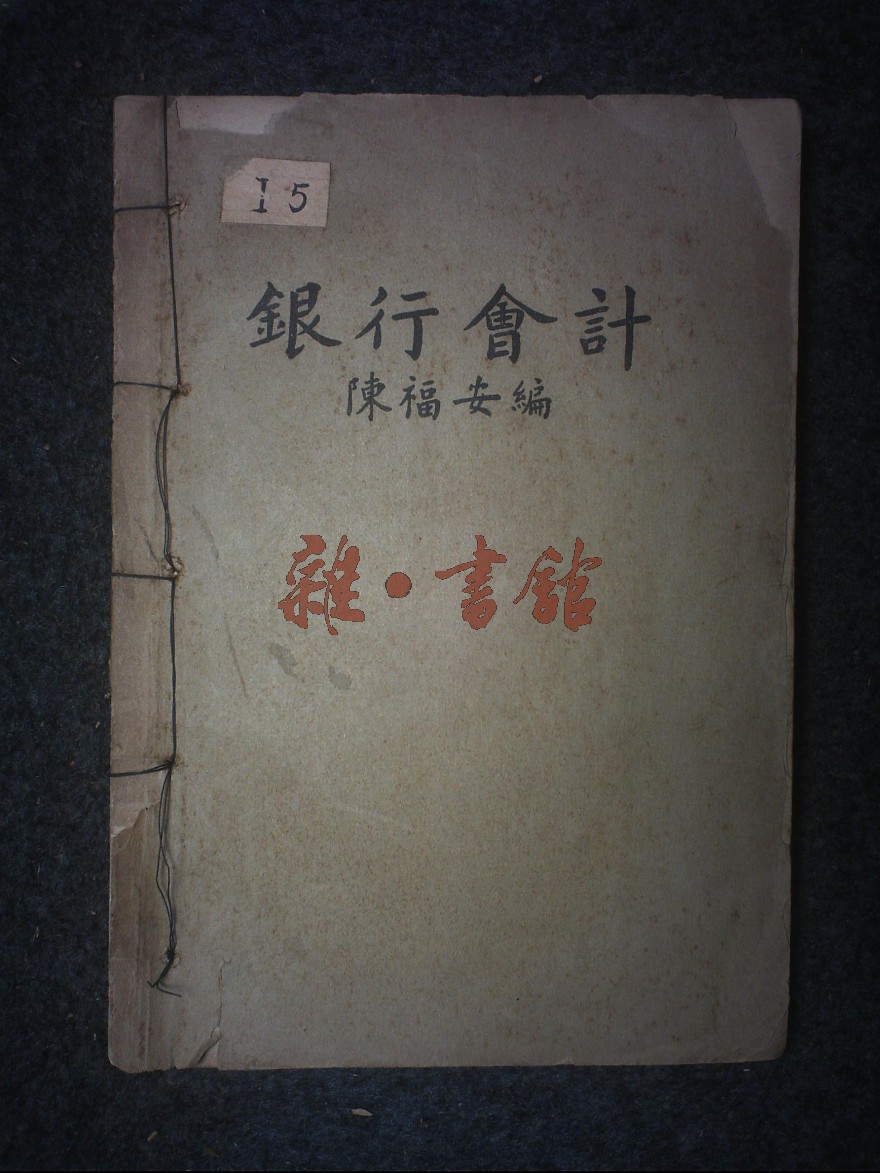 I 5
銀行會計
陳福安編
雜·書館